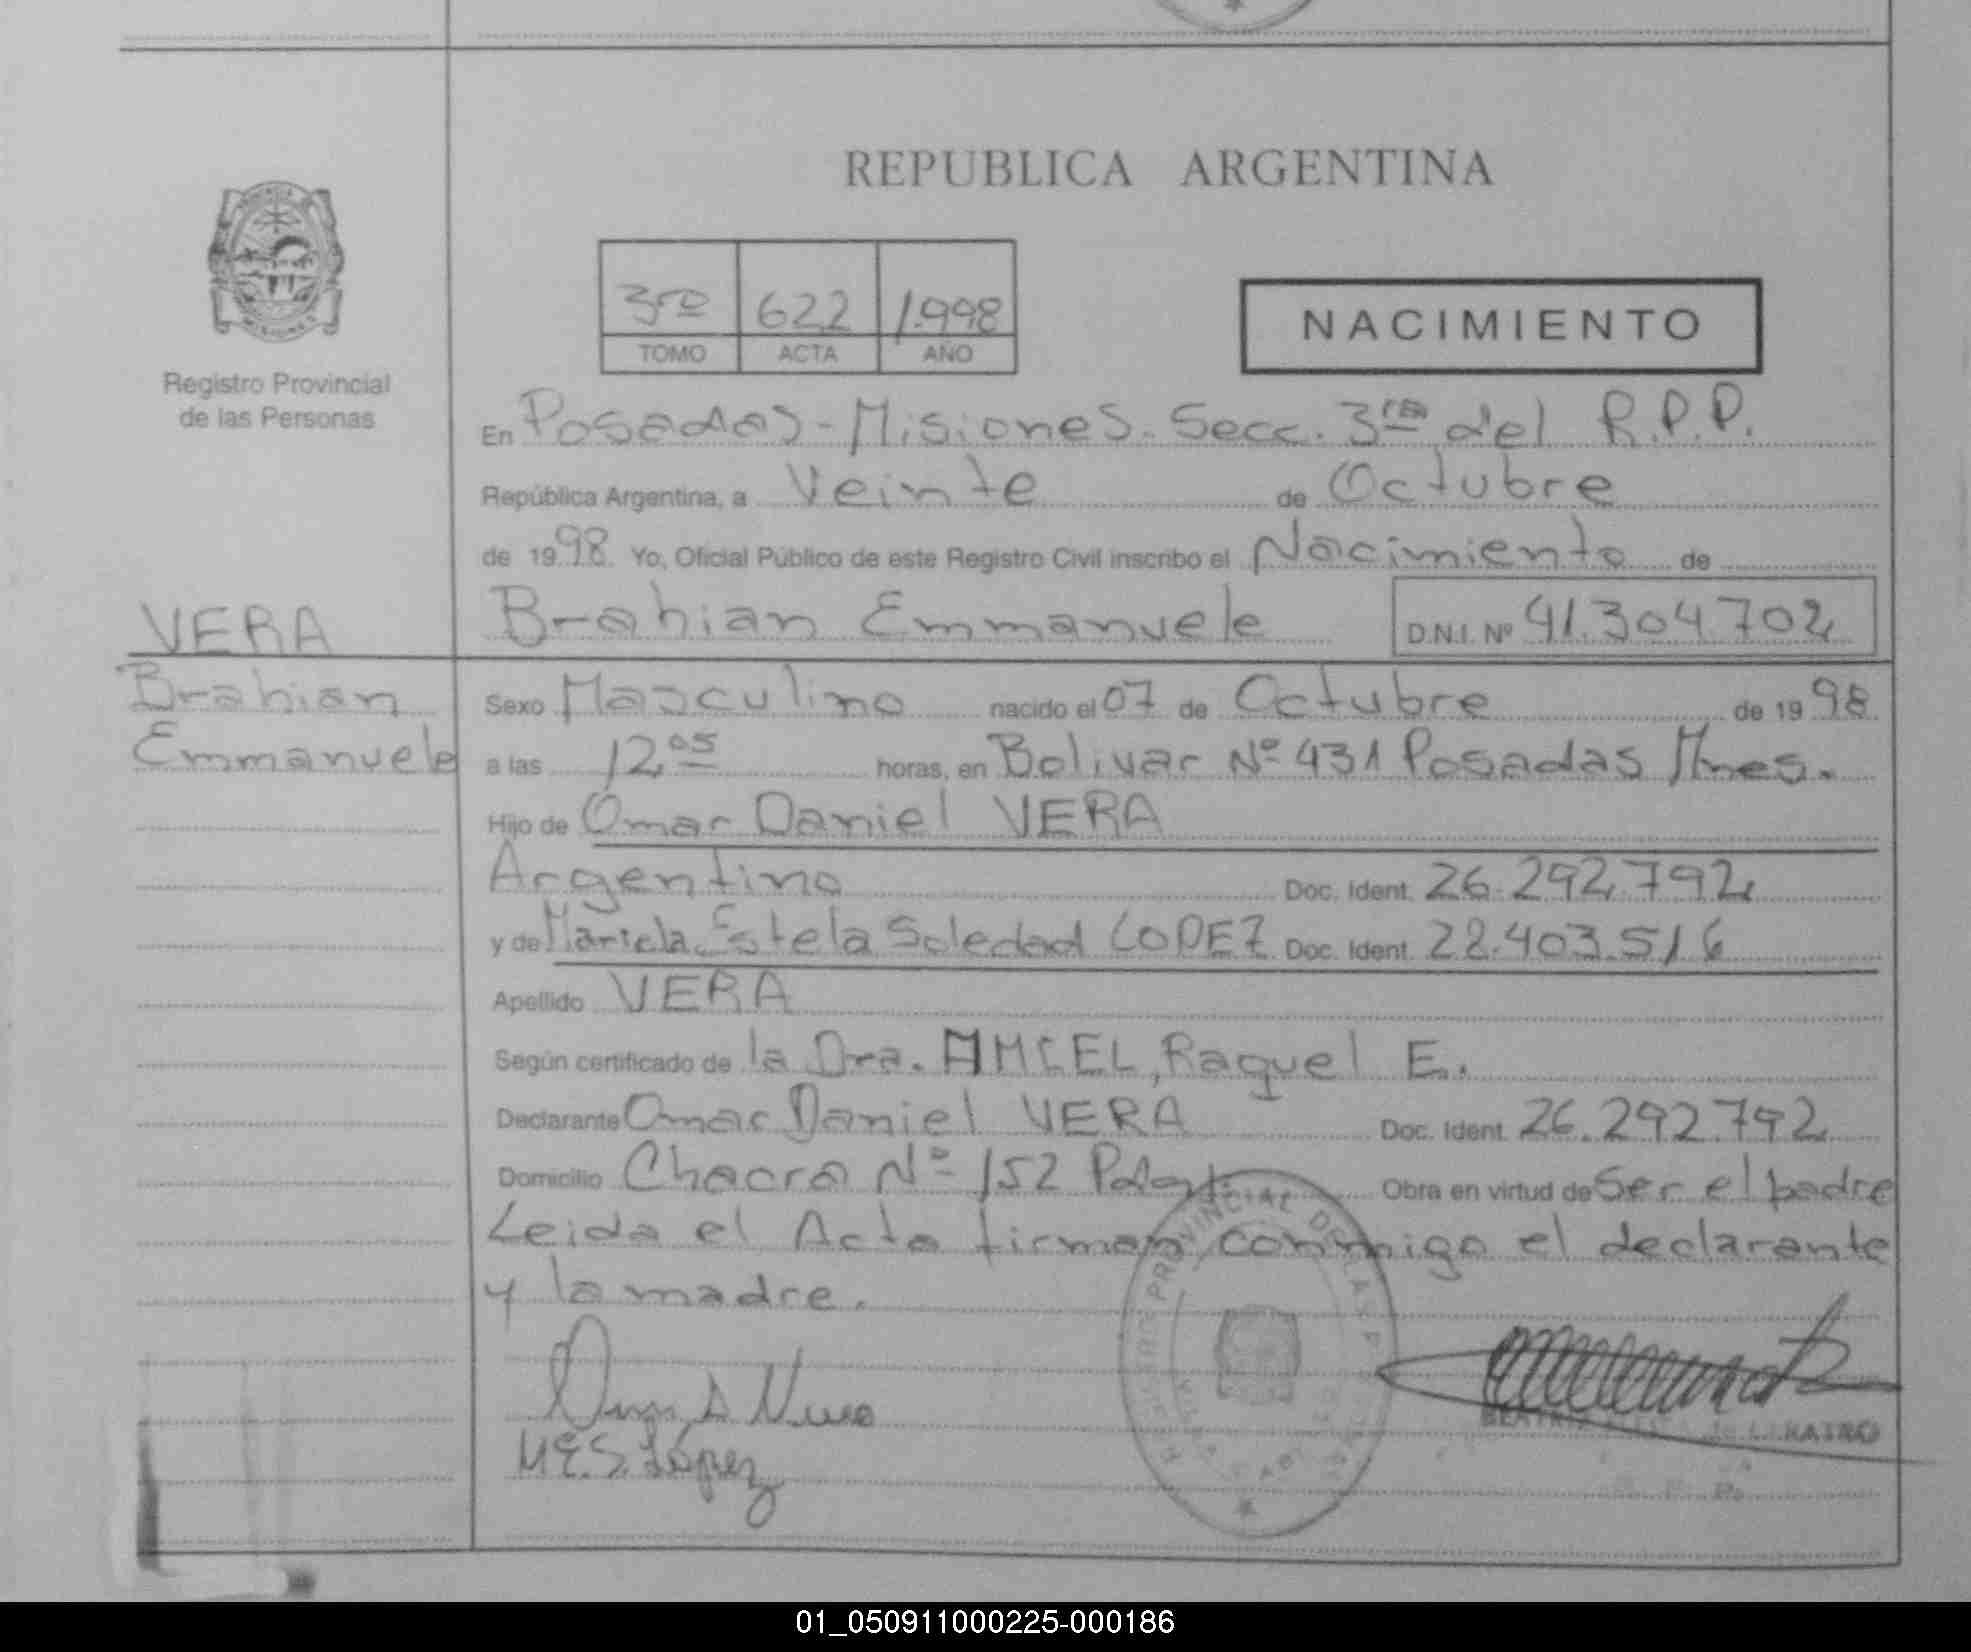 REPUBLICA ARGENTINA
3ro 622 1.998
TOMO ACTA AÑO
NACIMIENTO
MISIONES
Registro Provincial
de las Personas
En Posadas - Misiones. Secc. 3ra del R.P.P.
República Argentina, a Veinte de Octubre
de 1998. Yo, Oficial Público de este Registro Civil inscribo el Nacimiento de
Brahian Emmanuele D.N.I. Nº 41.304.702
VERA
Brahian
Emmanuele
Sexo Masculino nacido el 07 de Octubre de 1998
a las 12 05 horas, en Bolivar Nº 431 Posadas Mnes.
Hijo de Omar Daniel VERA
Argentino Doc. Ident. 26.292.792
y de Mariela Estela Soledad LOPEZ Doc. Ident. 22.403.516
Apellido VERA
Según certificado de la Dra. Raquel E.
Declarante Omar Daniel VERA Doc. Ident. 26.292.792
Domicilio Chacra Nº 152 Obra en virtud de Ser el padre
Leida el Acta firman conmigo el declarante
y la madre.
M.E.S. López
PROVINCIAL DE LAS
BEATRIZ
01_050911000225-000186